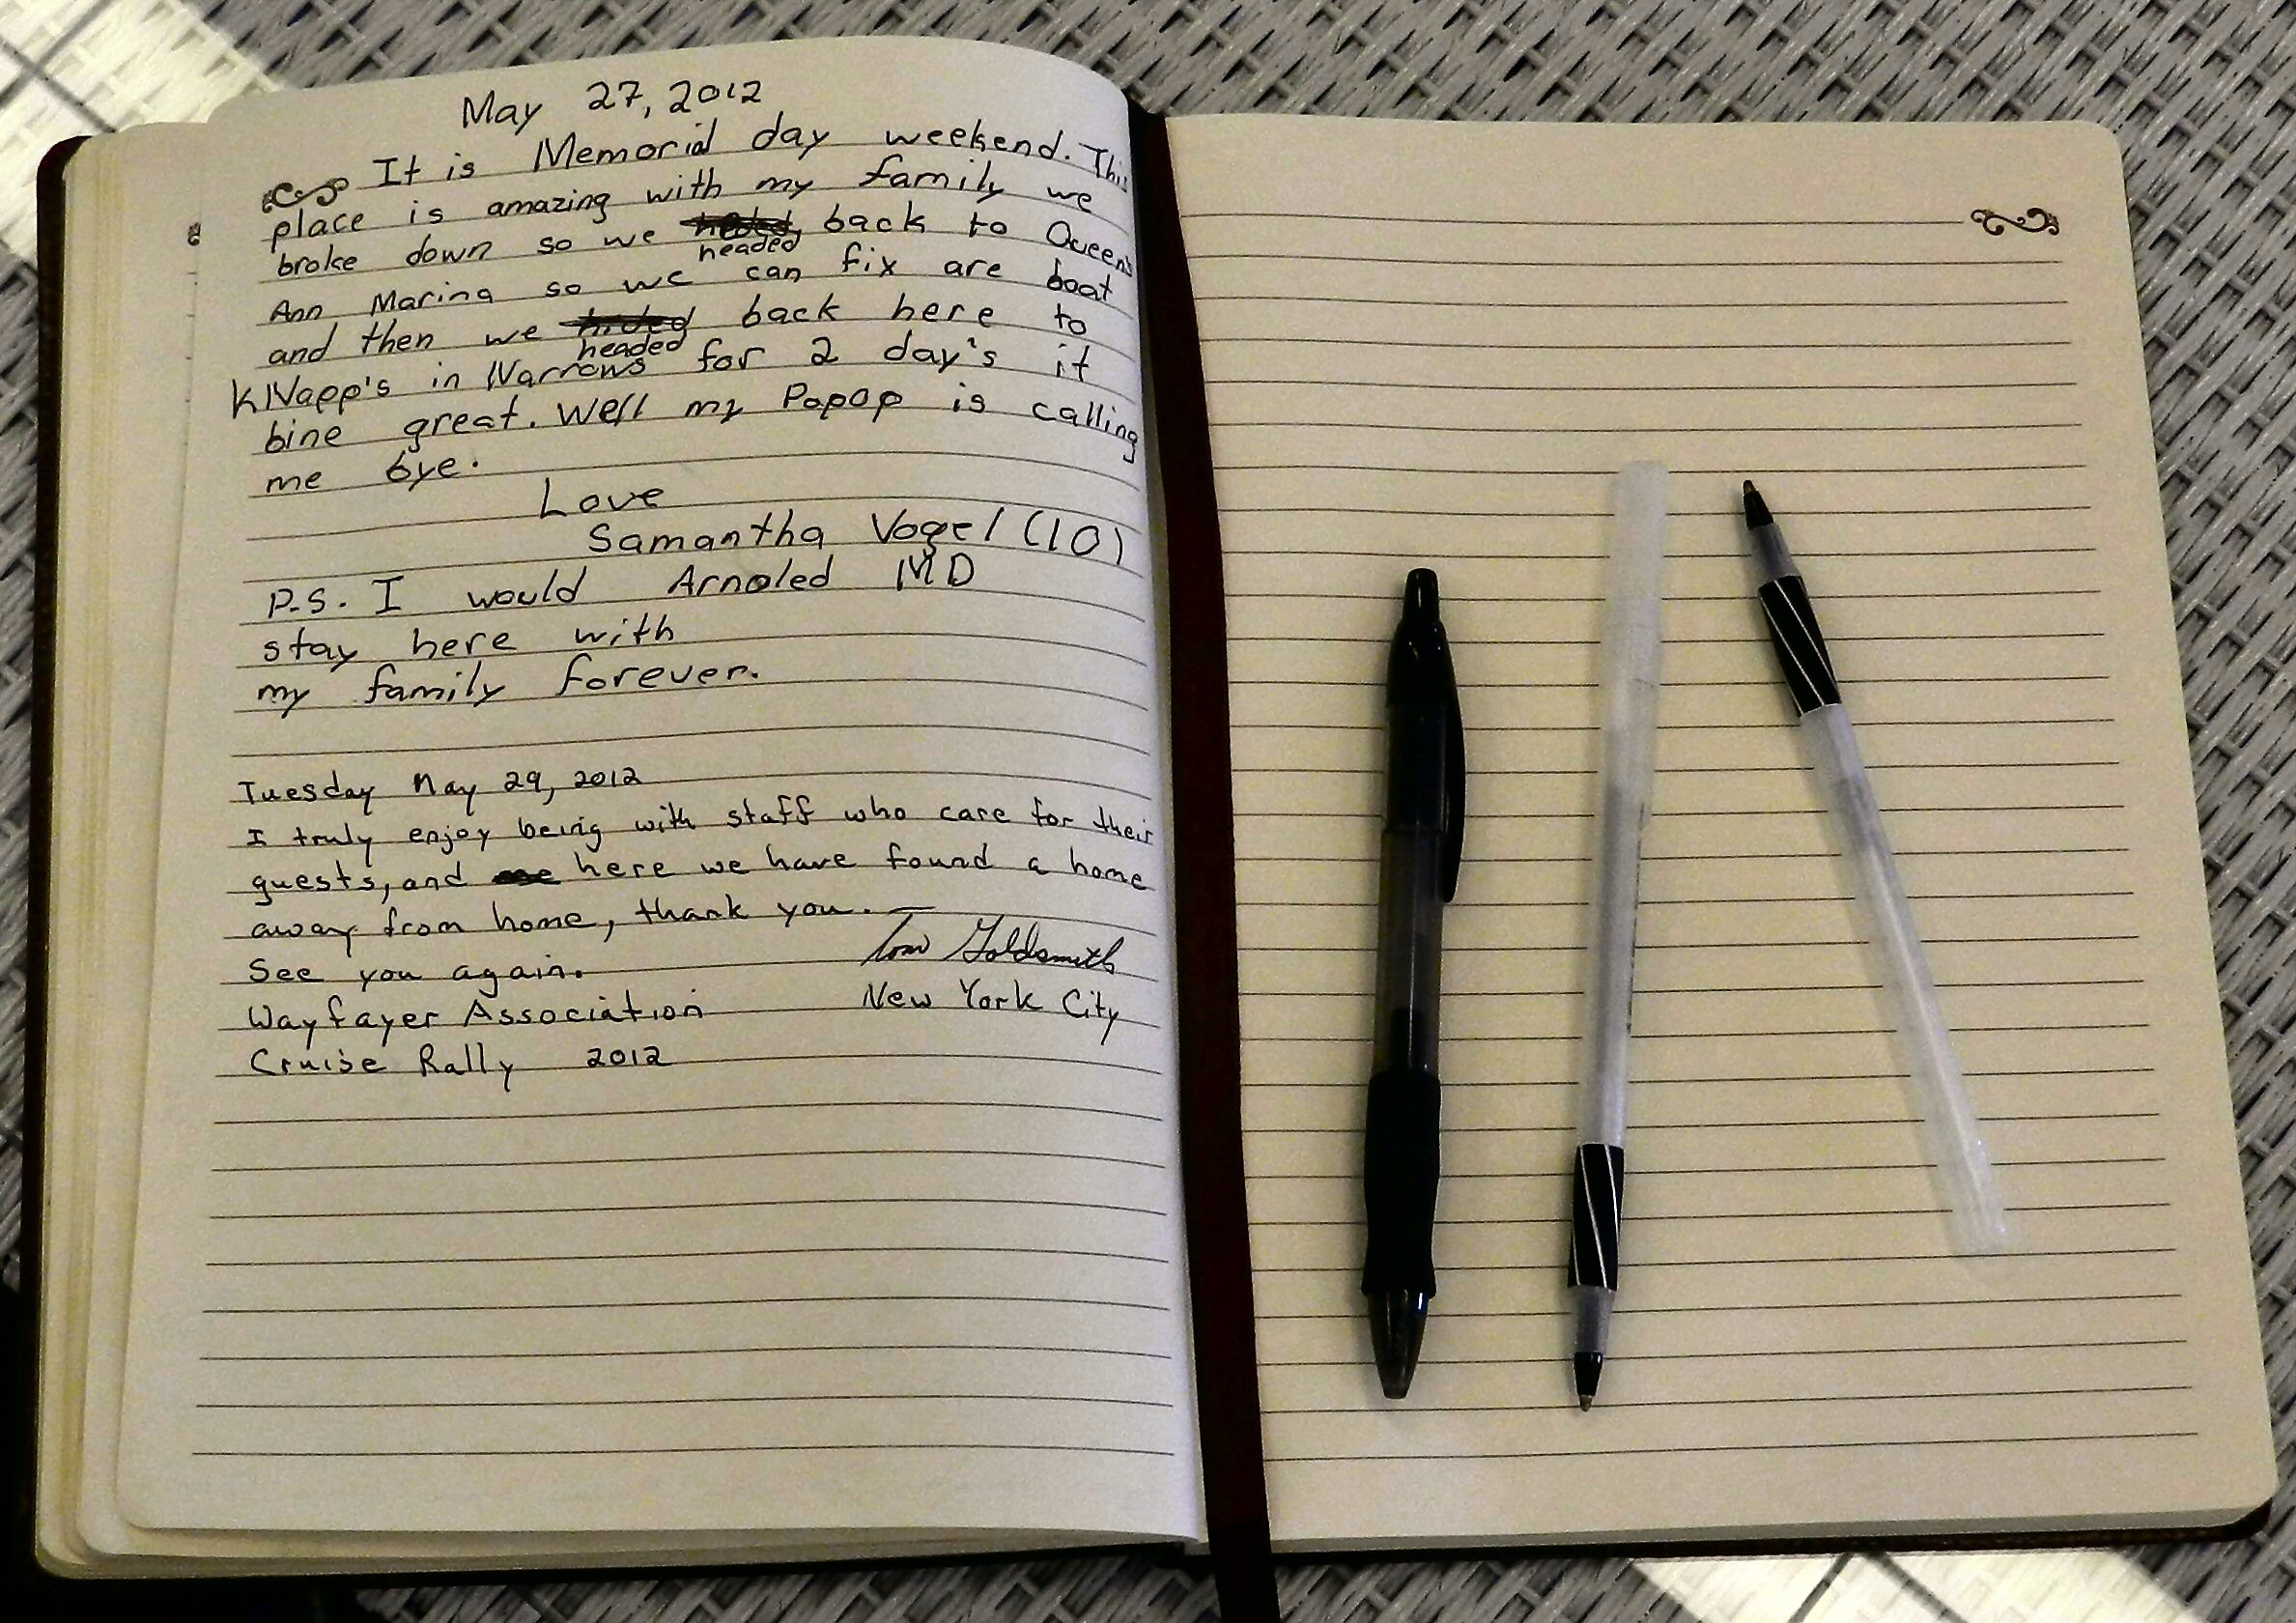 May 27, 2012
It is Memorial day weekend. This
place is amazing with my family we
broke down so we headed back to Queen's
Ann Marina so we can fix are boat
and then we headed back here to
KNapp's in Narrows for 2 day's it
bine great. Well my Popop is calling
me bye.
Love
Samantha Vogel (10)
P.S. I would Arnoled MD
stay here with
my family forever.
Tuesday May 29, 2012
I truly enjoy being with staff who care for their
guests, and here we have found a home
away from home, thank you. —
See you again. Tom Goldsmith
Wayfayer Association New York City
Cruise Rally 2012